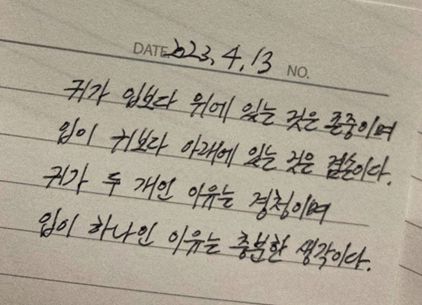 DATE 2023. 4. 13 NO.
귀가 입보다 위에 있는 것은 존중이며
입이 귀보다 아래에 있는 것은 겸손이다.
귀가 두 개인 이유는 경청이며
입이 하나인 이유는 충분한 생각이다.